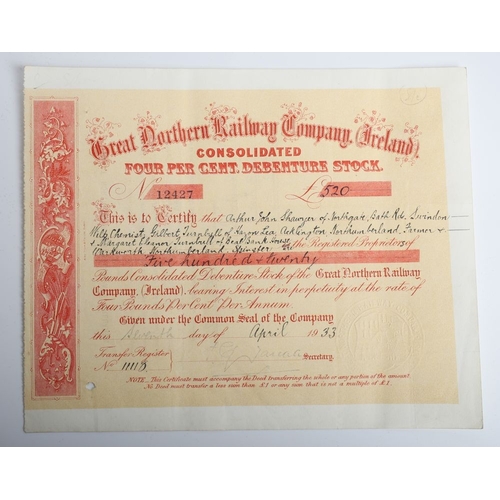 Great Northern Railway Company, (Ireland)
CONSOLIDATED
FOUR PER CENT. DEBENTURE STOCK.
No 12427 £520
This is to Certify that Arthur John of Northgate, Bath Rd. Swindon
Wilts Chemist, Gilbert Turnbull of Acklington Northumberland, Farmer &
& Margaret Eleanor Turnbull of Bank House
Warkworth Northumberland Spinster the Registered Proprietors of
Five hundred & twenty
Pounds Consolidated Debenture Stock of the Great Northern Railway
Company, (Ireland) bearing Interest in perpetuity at the rate of
Four Pounds Per Cent Per Annum.
Given under the Common Seal of the Company
this day of April 1933
Transfer Register
No Secretary.
NOTE. This Certificate must accompany the Deed transferring the whole or any portion of the amount.
No Deed must transfer a less sum than £1 or any sum that is not a multiple of £1.